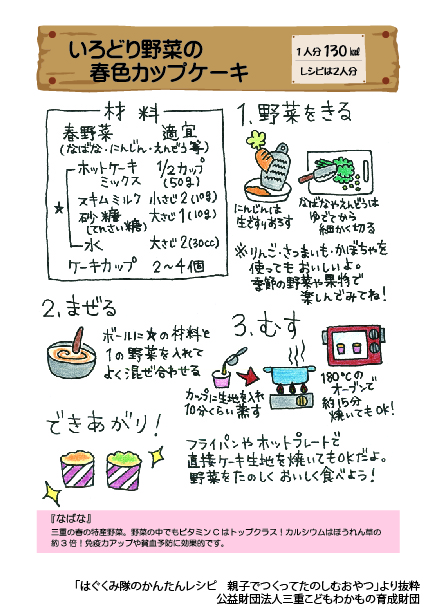 いろどり野菜の
春色カップケーキ
1人分 130 kcal
レシピは2人分
材料
春野菜 適宜
(なばな・にんじん・えんどう等)
ホットケーキミックス 1/2カップ(50g)
★
スキムミルク 小さじ2(10g)
砂糖(てんさい糖) 大さじ1(10g)
水 大さじ2(30cc)
ケーキカップ 2〜4個
1.野菜をきる
にんじんは
生ですりおろす
なばなやえんどうは
ゆでてから
細かく切る
※りんご・さつまいも・かぼちゃを
使ってもおいしいよ。
季節の野菜や果物で
楽しんでみてね!
2.まぜる
ボールに★の材料と
1の野菜を入れて
よく混ぜ合わせる
3.むす
カップに生地を入れ
10分くらい蒸す
180℃の
オーブンで
約15分
焼いてもOK!
できあがり!
フライパンやホットプレートで
直接ケーキ生地を焼いてもOKだよ。
野菜をたのしくおいしく食べよう!
『なばな』
三重の春の特産野菜。野菜の中でもビタミンCはトップクラス!カルシウムはほうれん草の
約3倍!免疫力アップや貧血予防に効果的です。
「はぐくみ隊のかんたんレシピ 親子でつくってたのしむおやつ」より抜粋
公益財団法人三重こどもわかもの育成財団